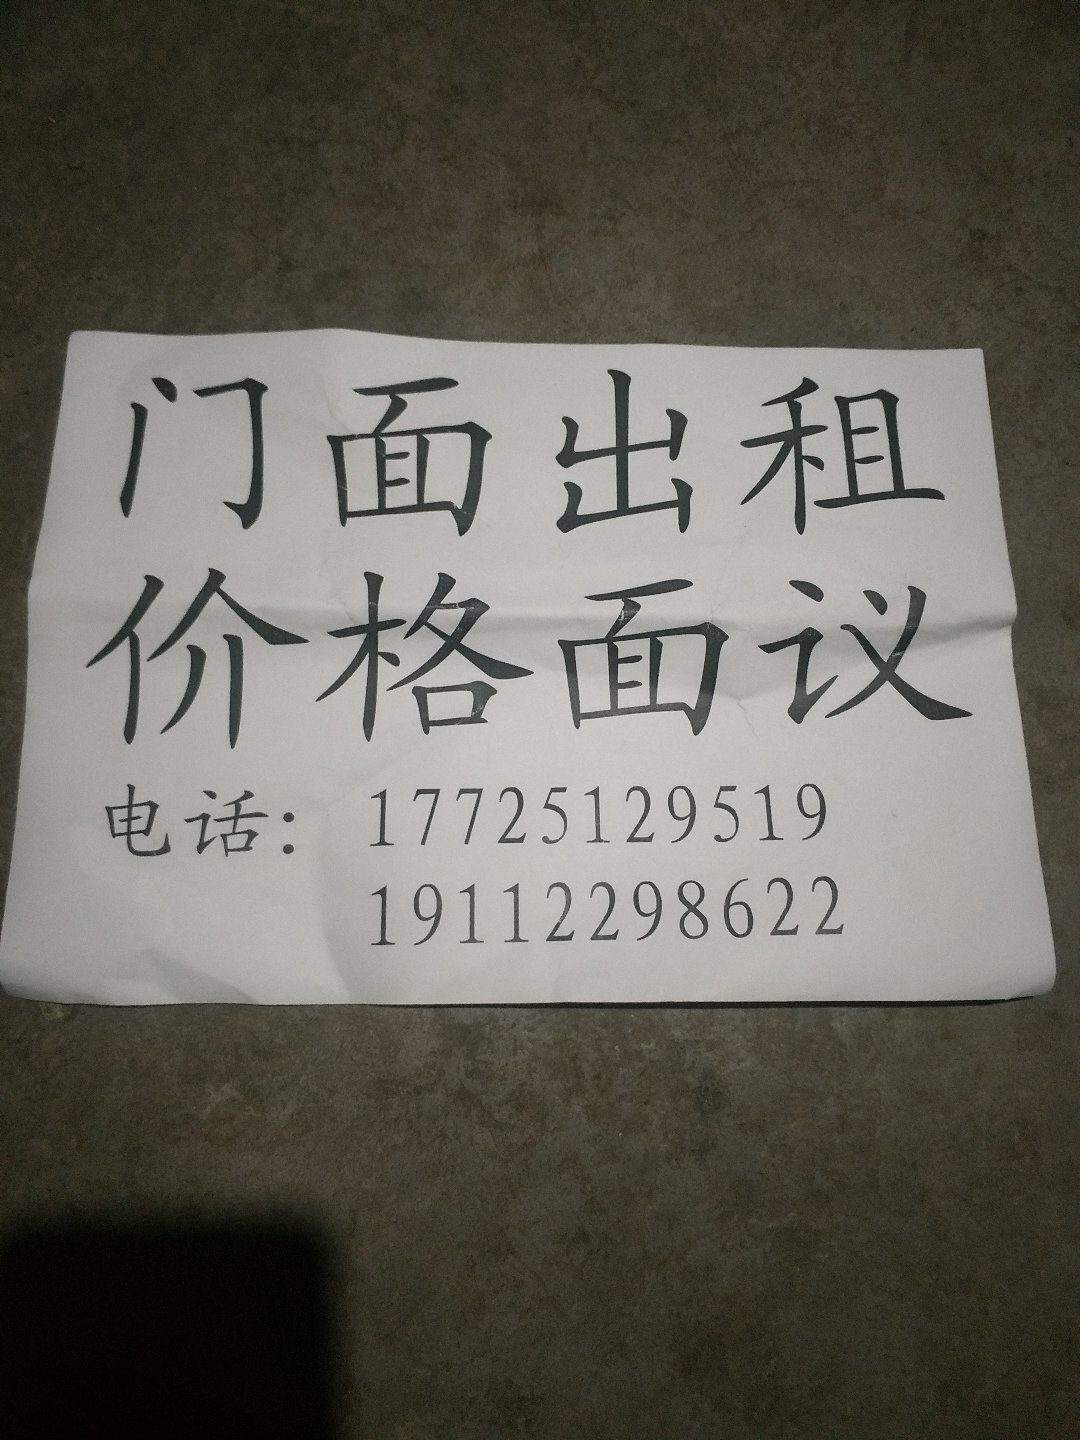 门面出租
价格面议
电话：17725129519
19112298622